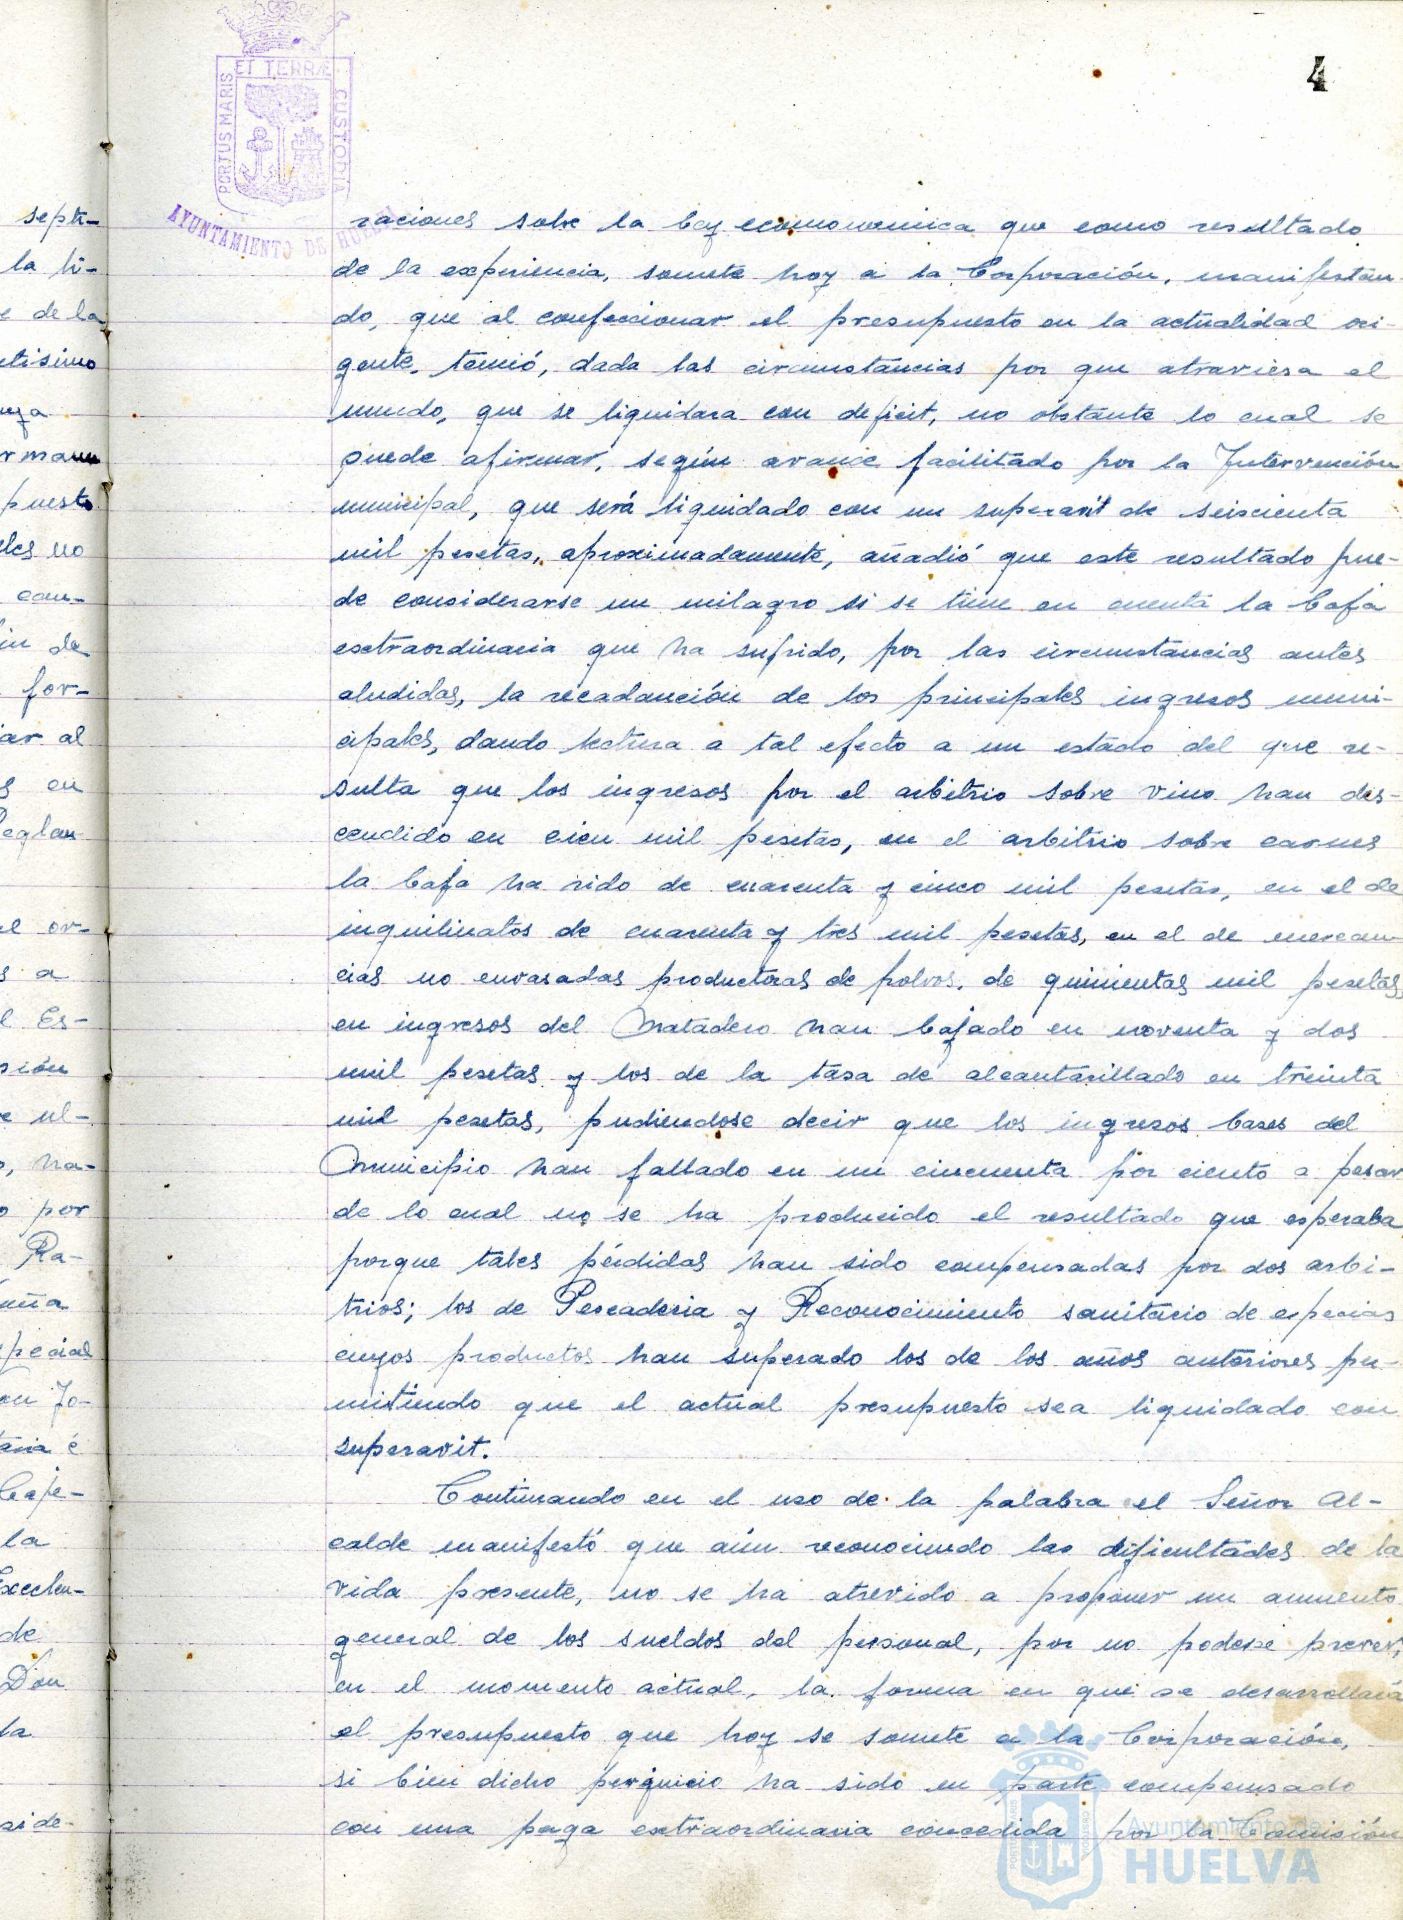 PORTUS MARIS ET TERRÆ CUSTODIA
AYUNTAMIENTO DE HUELVA
4
septi-
la li-
e de la
ntisimo
rmann
puesto
les no
com-
fin de
for-
iar al
s en
Reglam
e or-
s a
l Es-
sión
e ul-
o, ha-
o por
Ra-
uña
pecial
on Jo-
taria é
Caje-
la
Excelen-
de
Don
la
side-
raciones sobre la ley economomica que como resultado
de la experiencia, somete hoy a la Corporación, manifestan-
do, que al confeccionar el presupuesto en la actualidad vi-
gente, temió, dada las circunstancias por que atraviesa el
mundo, que se liquidara con deficit, no obstante lo cual se
puede afirmar, según avance facilitado por la Intervención
municipal, que será liquidado con un superavit de seiscienta
mil pesetas, aproximadamente, añadió que este resultado pue-
de considerarse un milagro si se tiene en cuenta la baja
extraordinaria que ha sufrido, por las circunstancias antes
aludidas, la recadanción de los principales ingresos muni-
cipales, dando lectura a tal efecto a un estado del que re-
sulta que los ingresos por el arbitrio sobre vino han des-
cendido en cien mil pesetas, en el arbitrio sobre carnes
la baja ha sido de cuarenta y cinco mil pesetas, en el de
inquilinatos de cuarenta y tres mil pesetas, en el de mercan-
cias no envasadas productoras de polvos, de quinientas mil pesetas,
en ingresos del Matadero han bajado en noventa y dos
mil pesetas y los de la tasa de alcantarillado en treinta
mil pesetas, pudiendose decir que los ingresos bases del
Municipio han fallado en un cincuenta por ciento a pesar
de lo cual no se ha producido el resultado que esperaba
porque tales pérdidas han sido compensadas por dos arbi-
trios; los de Pescaderia y Reconocimiento sanitario de especias
cuyos productos han superado los de los años anteriores per-
mitiendo que el actual presupuesto sea liquidado con
superavit.
Continuando en el uso de la palabra el Señor Al-
calde manifestó que aún reconociendo las dificultades de la
vida presente, no se ha atrevido a proponer un aumento
general de los sueldos del personal, por no poderse prever,
en el momento actual, la forma en que se desarrollará
el presupuesto que hoy se somete a la Corporación,
si bien dicho perjuicio ha sido en parte compensado
con una paga extraordinaria concedida por la Comisión
Ayuntamiento de
HUELVA